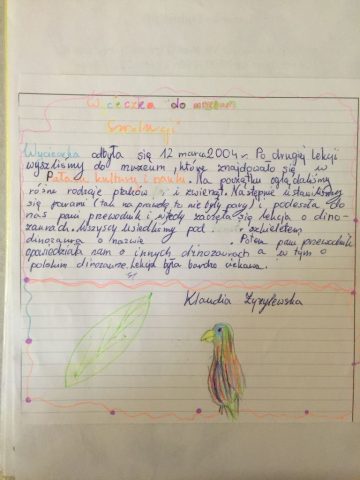 Wycieczka do muzeum
Ewolucji
Wycieczka odbyła się 12 marca 2004 r. Po drugiej lekcji
wyszliśmy do muzeum, które znajdowało się w
Pałacu kultury i nauki. Na początku oglądaliśmy
różne rodzaje ptaków i zwierząt. Następnie ustawiliśmy
się parami (tak na prawdę to nie były pary) i podeszła do
nas pani przewodnik i wtedy zaczęła się lekcja o dino-
zaurach. Wszyscy usiedliśmy pod szkieletem
dinozaura o nazwie . Potem pani przewodnik
opowiedziała nam o innych dinozaurach a w tym o
polskim dinozaurze. Lekcja była bardzo ciekawa.
Klaudia Żyrylewska